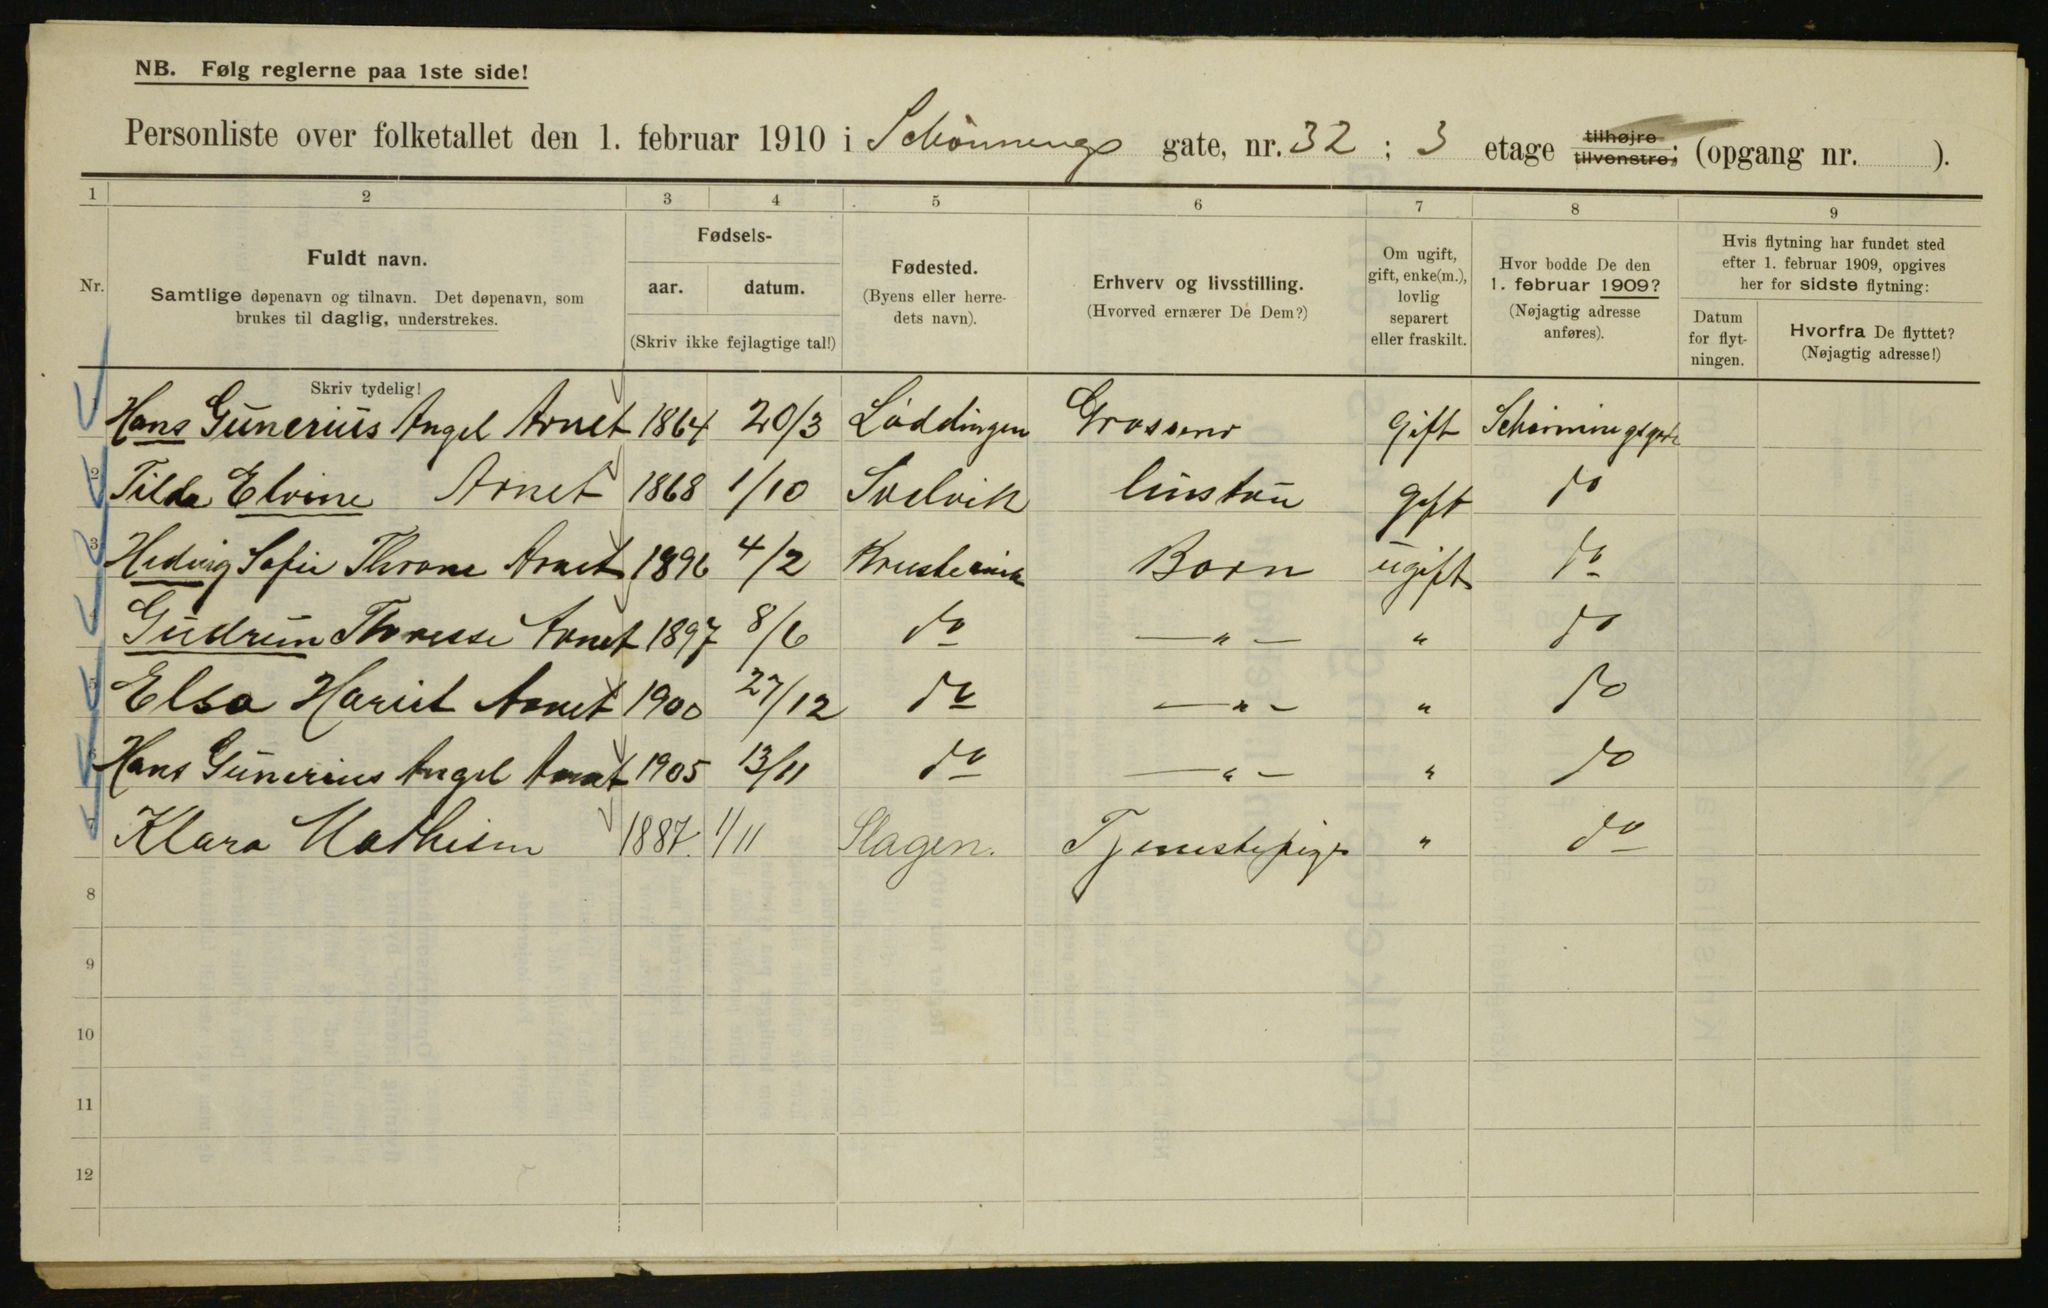 NB. Følg reglerne paa 1ste side!
Personliste over folketallet den 1. februar 1910 i Schønnings gate, nr. 32 ; 3 etage tilhøjre tilvenstre; (opgang nr. ).
1 2 3 4 5 6 7 8 9
Nr.
Fuldt navn.
Samtlige døpenavn og tilnavn. Det døpenavn, som
brukes til daglig, understrekes.
Skriv tydelig!
Fødsels-
aar. datum.
(Skriv ikke fejlagtige tal!)
Fødested.
(Byens eller herre-
dets navn).
Erhverv og livsstilling.
(Hvorved ernærer De Dem?)
Om ugift,
gift, enke(m.),
lovlig
separert
eller fraskilt.
Hvor bodde De den
1. februar 1909?
(Nøjagtig adresse
anføres).
Hvis flytning har fundet sted
efter 1. februar 1909, opgives
her for sidste flytning:
Datum
for flyt-
ningen.
Hvorfra De flyttet?
(Nøjagtig adresse!)
Hans Günerius Angel Arnet 1864 20/3 Løddingen Grosserer gift Schønningsgade
2 Tilda Elvine Arnet 1868 1/10 Svelvik hustru gift do
3 Hedvig Sofie Throne Arnet 1896 4/2 Barn ugift do
4 Gudrun Arnet 1897 8/6 do — " — " do
5 Elsa Hariet Arnet 1900 27/12 do — " — " do
6 Hans Günerius Angel Arnet 1905 13/11 do — " — " do
7 Klara Mathisen 1887. 1/11 Slagen. Tjenestepige " do
8
9
10
11
12